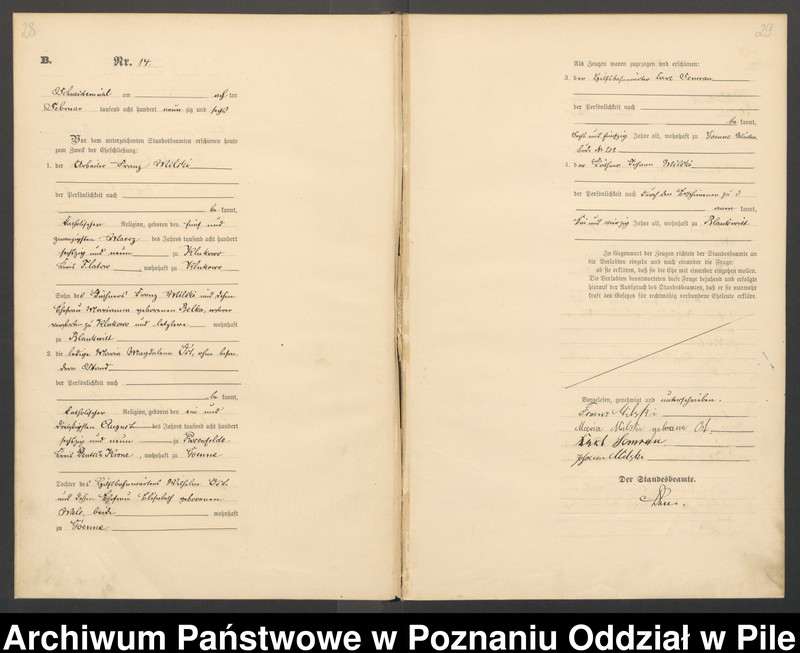 28
B.
Nr. 14.
Schneidemühl am ach ten
Februar tausend acht hundert neun zig und sechs
Vor dem unterzeichneten Standesbeamten erschienen heute
zum Zweck der Eheschließung:
1. der Arbeiter Franz Milski
der Persönlichkeit nach
be kannt,
katholischer Religion, geboren den fünf und
zwanzigsten Maerz des Jahres tausend acht hundert
sechszig und neun zu Klukowo
Kreis Flatow, wohnhaft zu Klukowo
Sohn des Franz Milski und dessen
Ehefrau Marianna geborenen
zu Klukowo und letztere wohnhaft
zu Blankwitt
2. die ledige Maria Magdalena Ost, ohne beson-
dern Stand
der Persönlichkeit nach
be kannt,
katholischer Religion, geboren den ein und
dreißigsten August des Jahres tausend acht hundert
sechszig und neun zu Rosenfelde
Kreis Deutsch Krone, wohnhaft zu
Tochter des Hilfsbahnwärters Wilhelm Ost
und dessen Ehefrau Elisabeth geborenen
beide wohnhaft
zu
29
Als Zeugen waren zugezogen und erschienen:
3. der Hilfsbahnwärter Carl Semrau
der Persönlichkeit nach
be kannt,
sechs und fünfzig Jahre alt, wohnhaft zu
bude N. 202
4. der Johann Milski
der Persönlichkeit nach durch den Erschienenen zu 3
aner kannt,
und vierzig Jahre alt, wohnhaft zu Blankwitt
In Gegenwart der Zeugen richtete der Standesbeamte an
die Verlobten einzeln und nach einander die Frage:
ob sie erklären, daß sie die Ehe mit einander eingehen wollen.
Die Verlobten beantworteten diese Frage bejahend und erfolgte
hierauf der Ausspruch des Standesbeamten, daß er sie nunmehr
kraft des Gesetzes für rechtmäßig verbundene Eheleute erkläre.
Vorgelesen, genehmigt und unterschrieben.
Franz Milski
Maria Milski geborene Ost.
Karl Semrau
Johann Milzki
Der Standesbeamte.
Archiwum Państwowe w Poznaniu Oddział w Pile